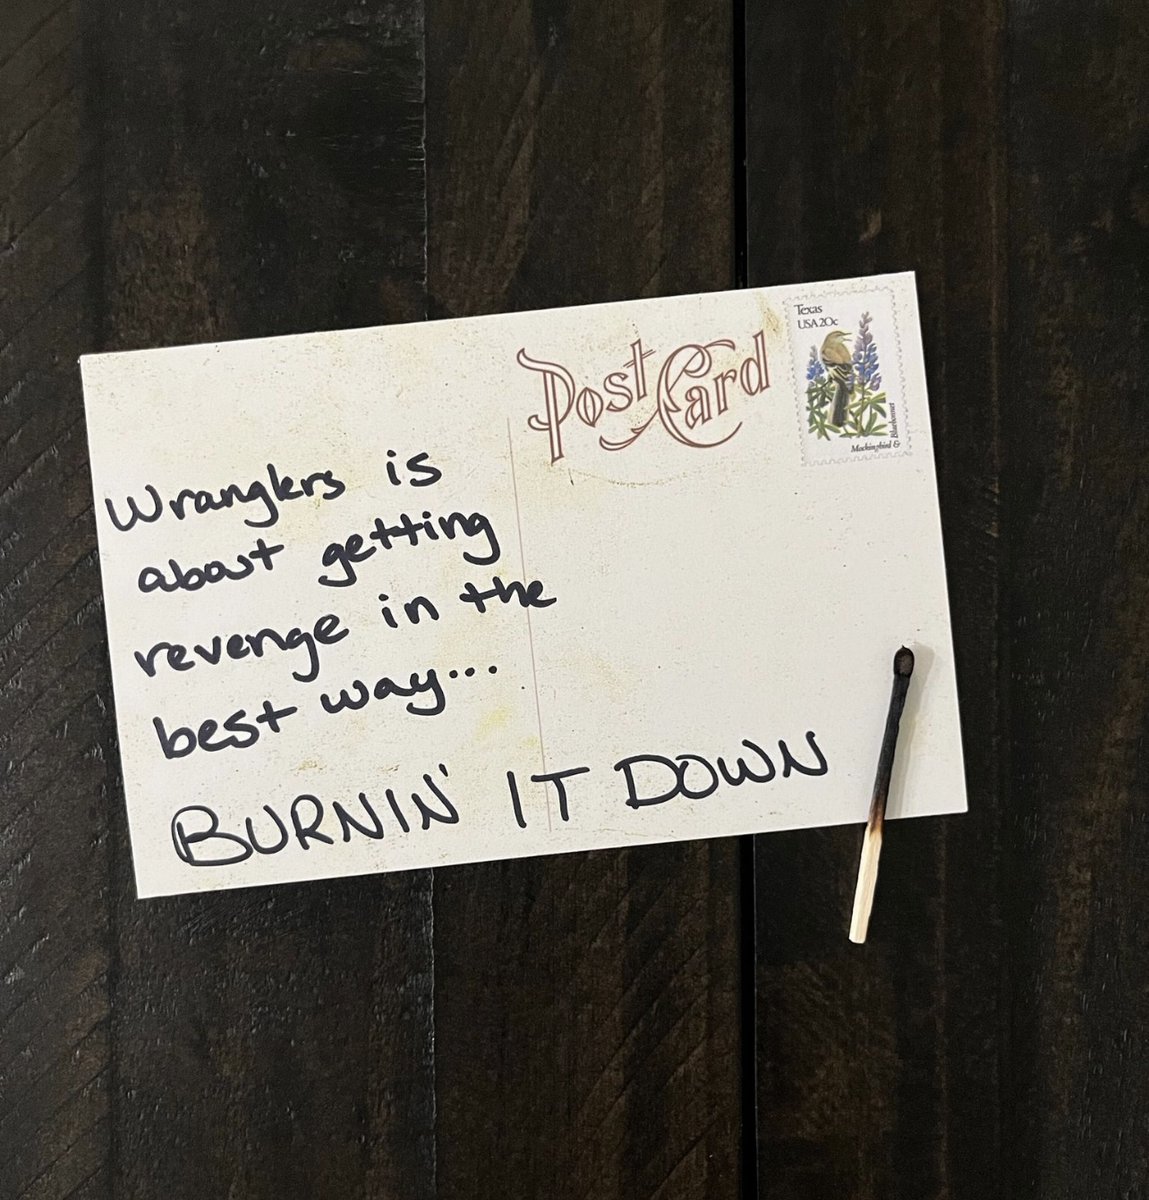 Post Card
Texas
USA 20c
Mockingbird &
Bluebonnet
Wranglers is
about getting
revenge in the
best way...
BURNIN' IT DOWN